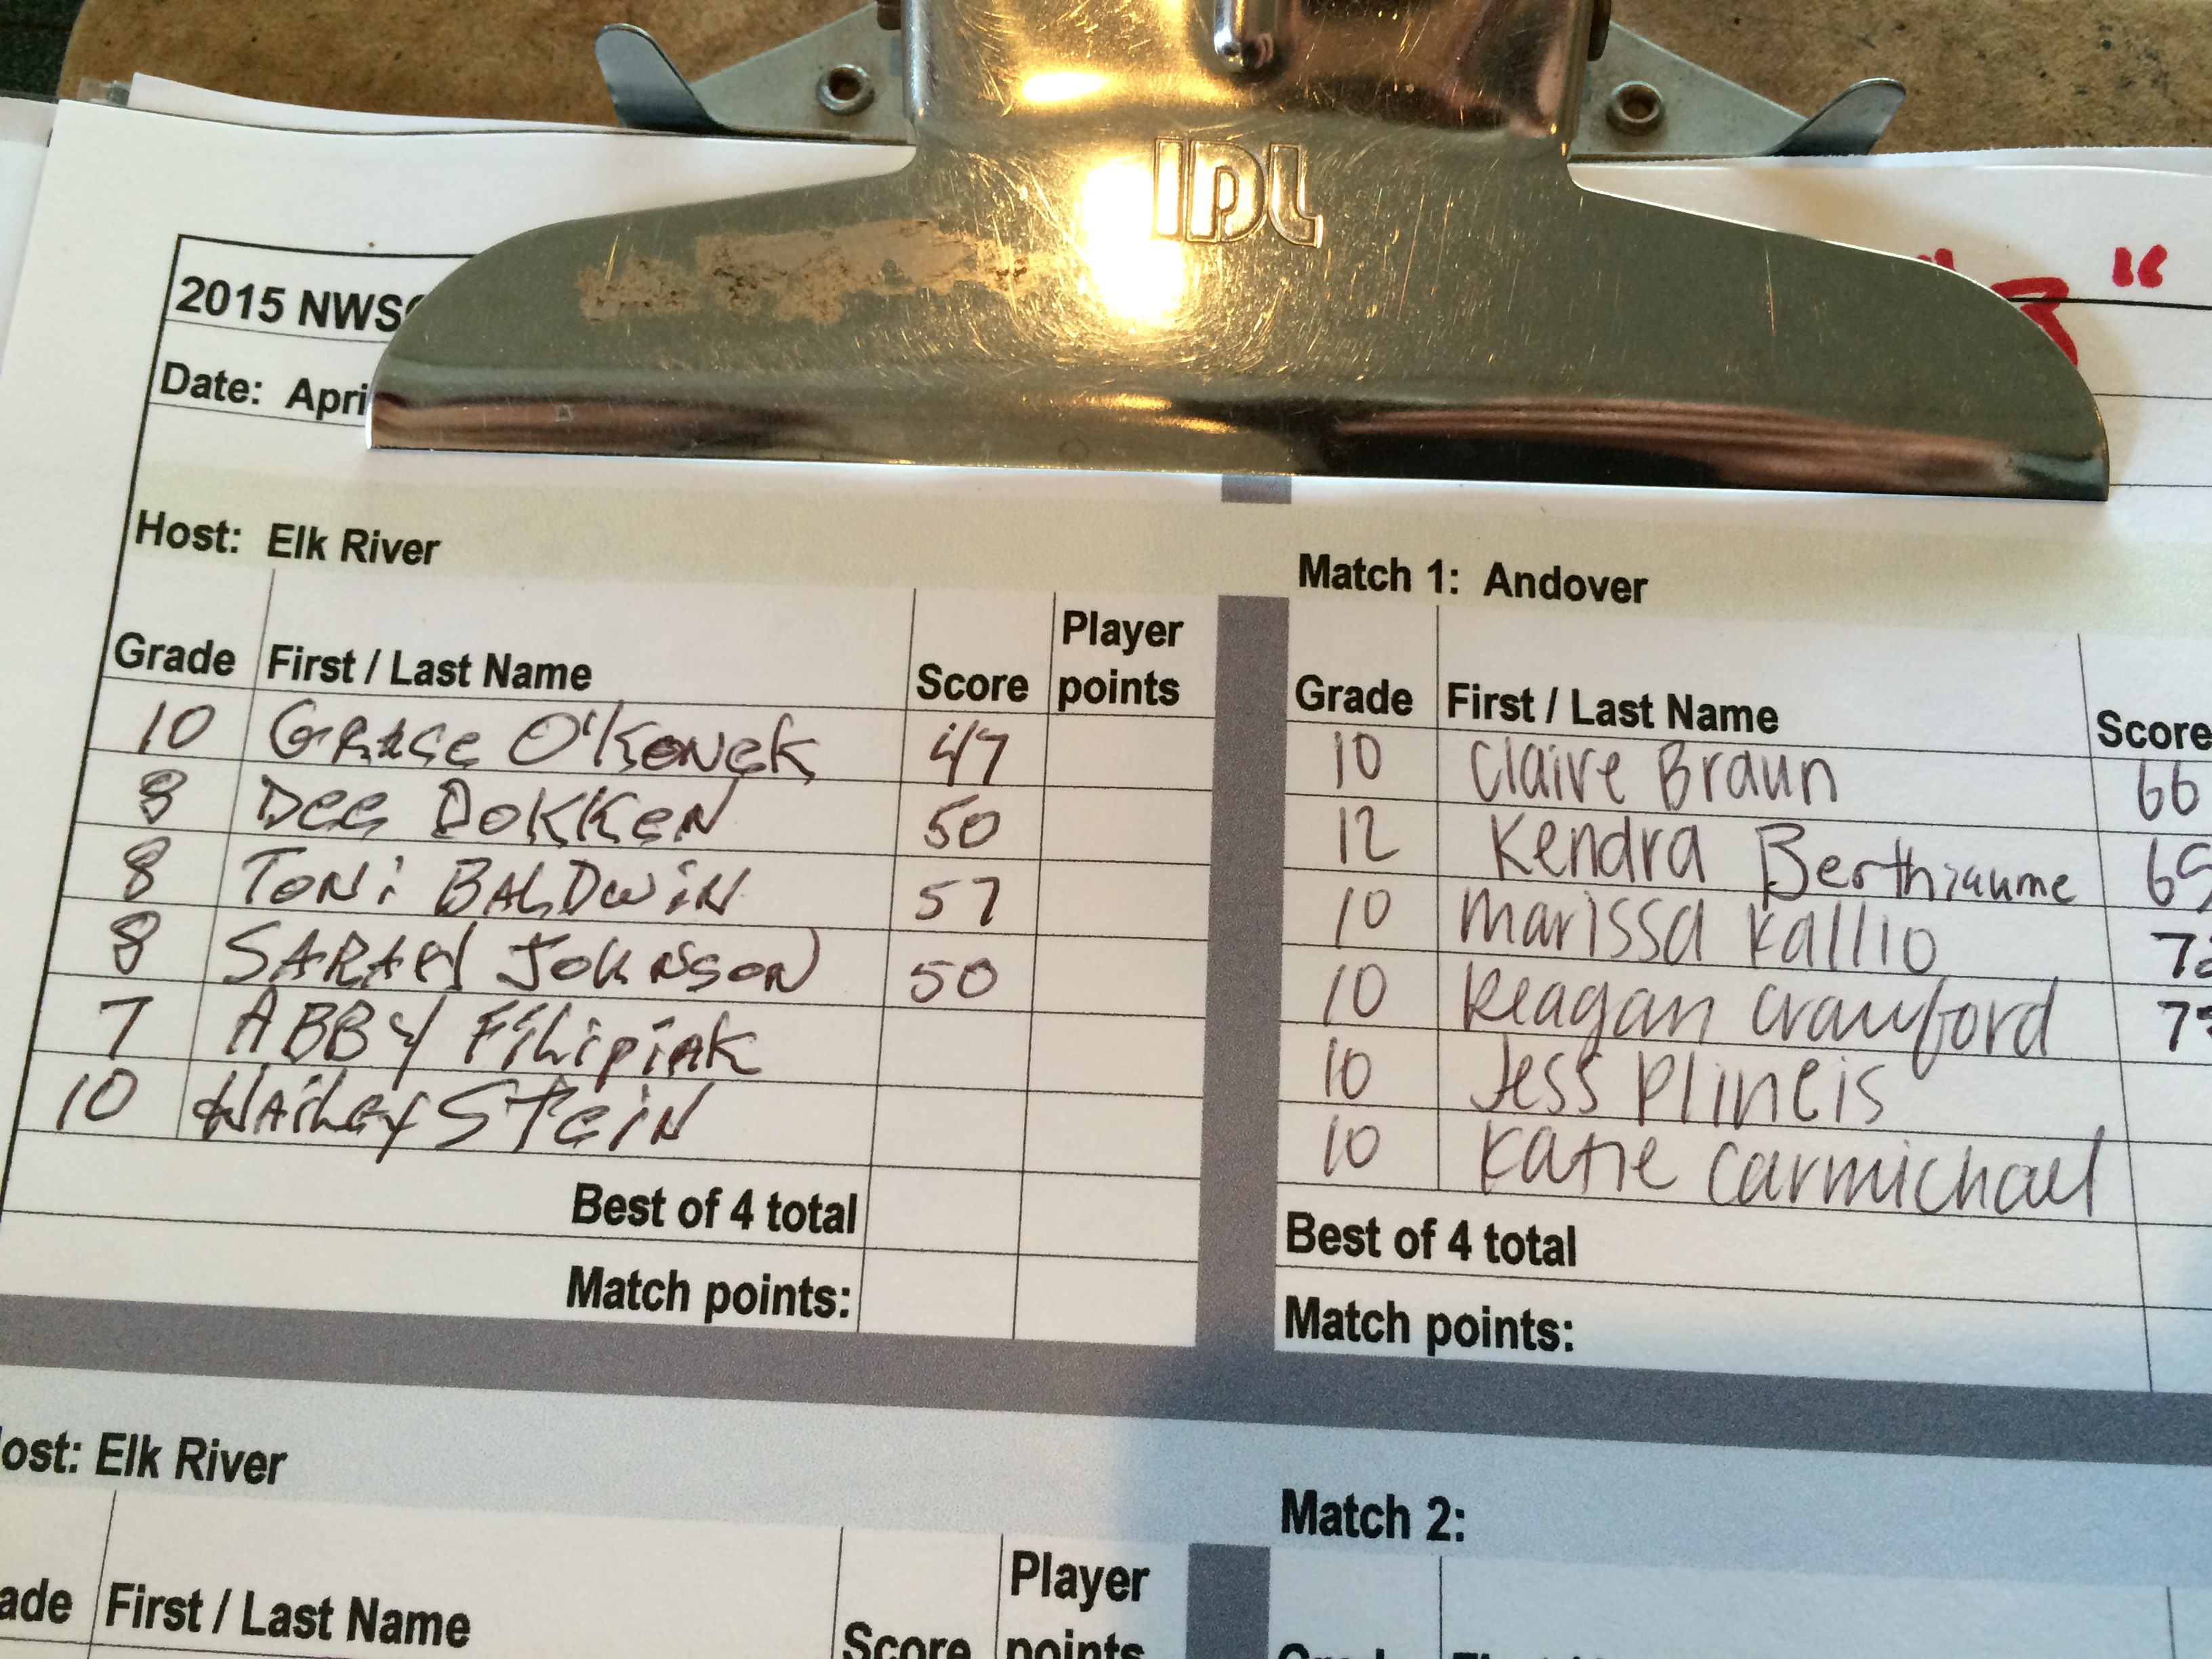 IDL
2015 NWS
Date: Apri
Host: Elk River
Match 1: Andover
Grade First / Last Name Score Player points
Grade First / Last Name Score
10 Grace O'Konek 47
8 Dee Dokken 50
8 Toni BALDwiN 57
8 SARAH Johnson 50
7 ABBy Filipiak
10 HAiLey Stein
Best of 4 total
Match points:
10 Claire Braun 66
12 Kendra Berthiaume
10 Marissa Kallio
10 Reagan Crawford
10 Jess Plineis
10 Katie Carmichael
Best of 4 total
Match points:
ost: Elk River
Match 2:
ade First / Last Name Score Player points